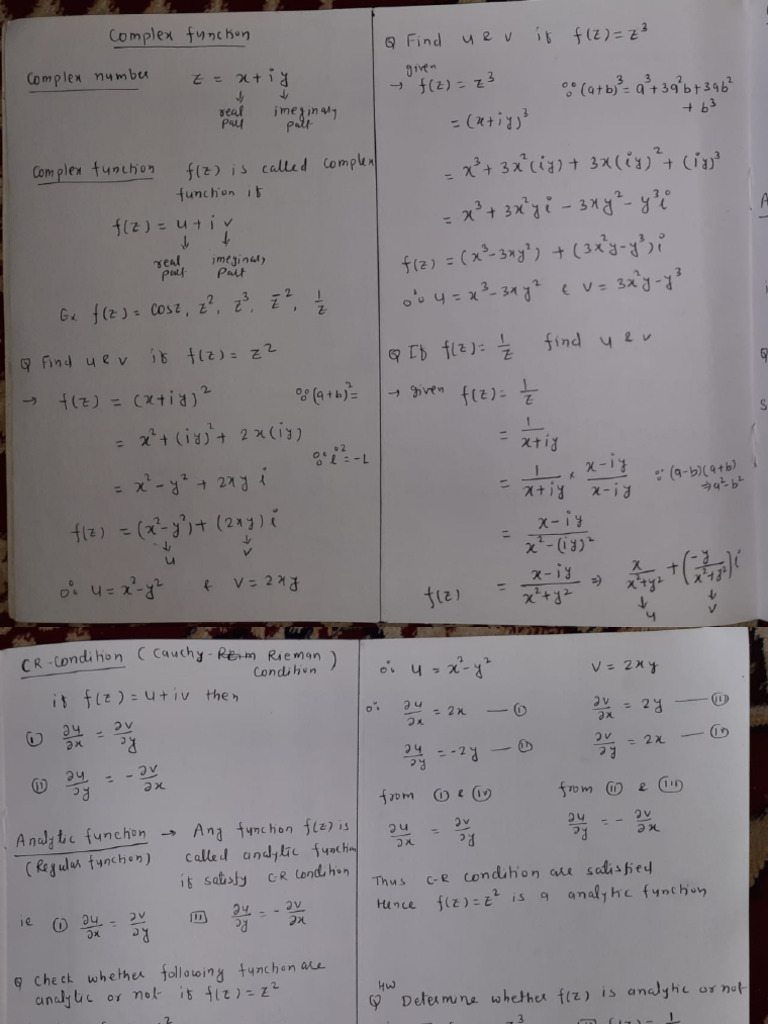 Complex function
Complex number z = x + iy
↓ ↓
real part imeginary part
Complex function f(z) is called complex
function if
f(z) = u + iv
↓ ↓
real part imeginary part
Ex f(z) = cosz, z², z³, z̄², 1/z
Q Find u & v if f(z) = z²
→ f(z) = (x+iy)² ∵ (a+b)² =
= x² + (iy)² + 2x(iy)
∵ i² = -1
= x² - y² + 2xy i
f(z) = (x²-y²) + (2xy) i
↓ ↓
u v
∴ u = x²-y² & v = 2xy
Q Find u & v if f(z) = z³
given
→ f(z) = z³ ∵ (a+b)³ = a³+3a²b+3ab²
+ b³
= (x+iy)³
= x³ + 3x²(iy) + 3x(iy)² + (iy)³
= x³ + 3x²yi - 3xy² - y³i
f(z) = (x³-3xy²) + (3x²y-y³)i
∴ u = x³-3xy² & v = 3x²y-y³
Q If f(z) = 1/z find u & v
→ given f(z) = 1/z
= 1/(x+iy)
= 1/(x+iy) × (x-iy)/(x-iy) ∵ (a-b)(a+b)
⇒ a²-b²
= (x-iy)/(x²-(iy)²)
f(z) = (x-iy)/(x²+y²) ⇒ x/(x²+y²) + (-y/(x²+y²))i
↓ ↓
u v
CR-Condition (Cauchy-Rieman
Condition)
if f(z) = u+iv then
(i) ∂u/∂x = ∂v/∂y
(ii) ∂u/∂y = -∂v/∂x
Analytic function → Any function f(z) is
(Regular function) called analytic function
if satisfy C-R condition
ie (i) ∂u/∂x = ∂v/∂y (ii) ∂u/∂y = -∂v/∂x
Q Check whether following function are
analytic or not if f(z) = z²
∴ u = x²-y² v = 2xy
∴ ∂u/∂x = 2x — (i) ∂v/∂x = 2y — (iii)
∂u/∂y = -2y — (ii) ∂v/∂y = 2x — (iv)
from (i) & (iv) from (ii) & (iii)
∂u/∂x = ∂v/∂y ∂u/∂y = -∂v/∂x
Thus C-R condition are satisfied
Hence f(z) = z² is a analytic function
HW
Q Determine whether f(z) is analytic or not